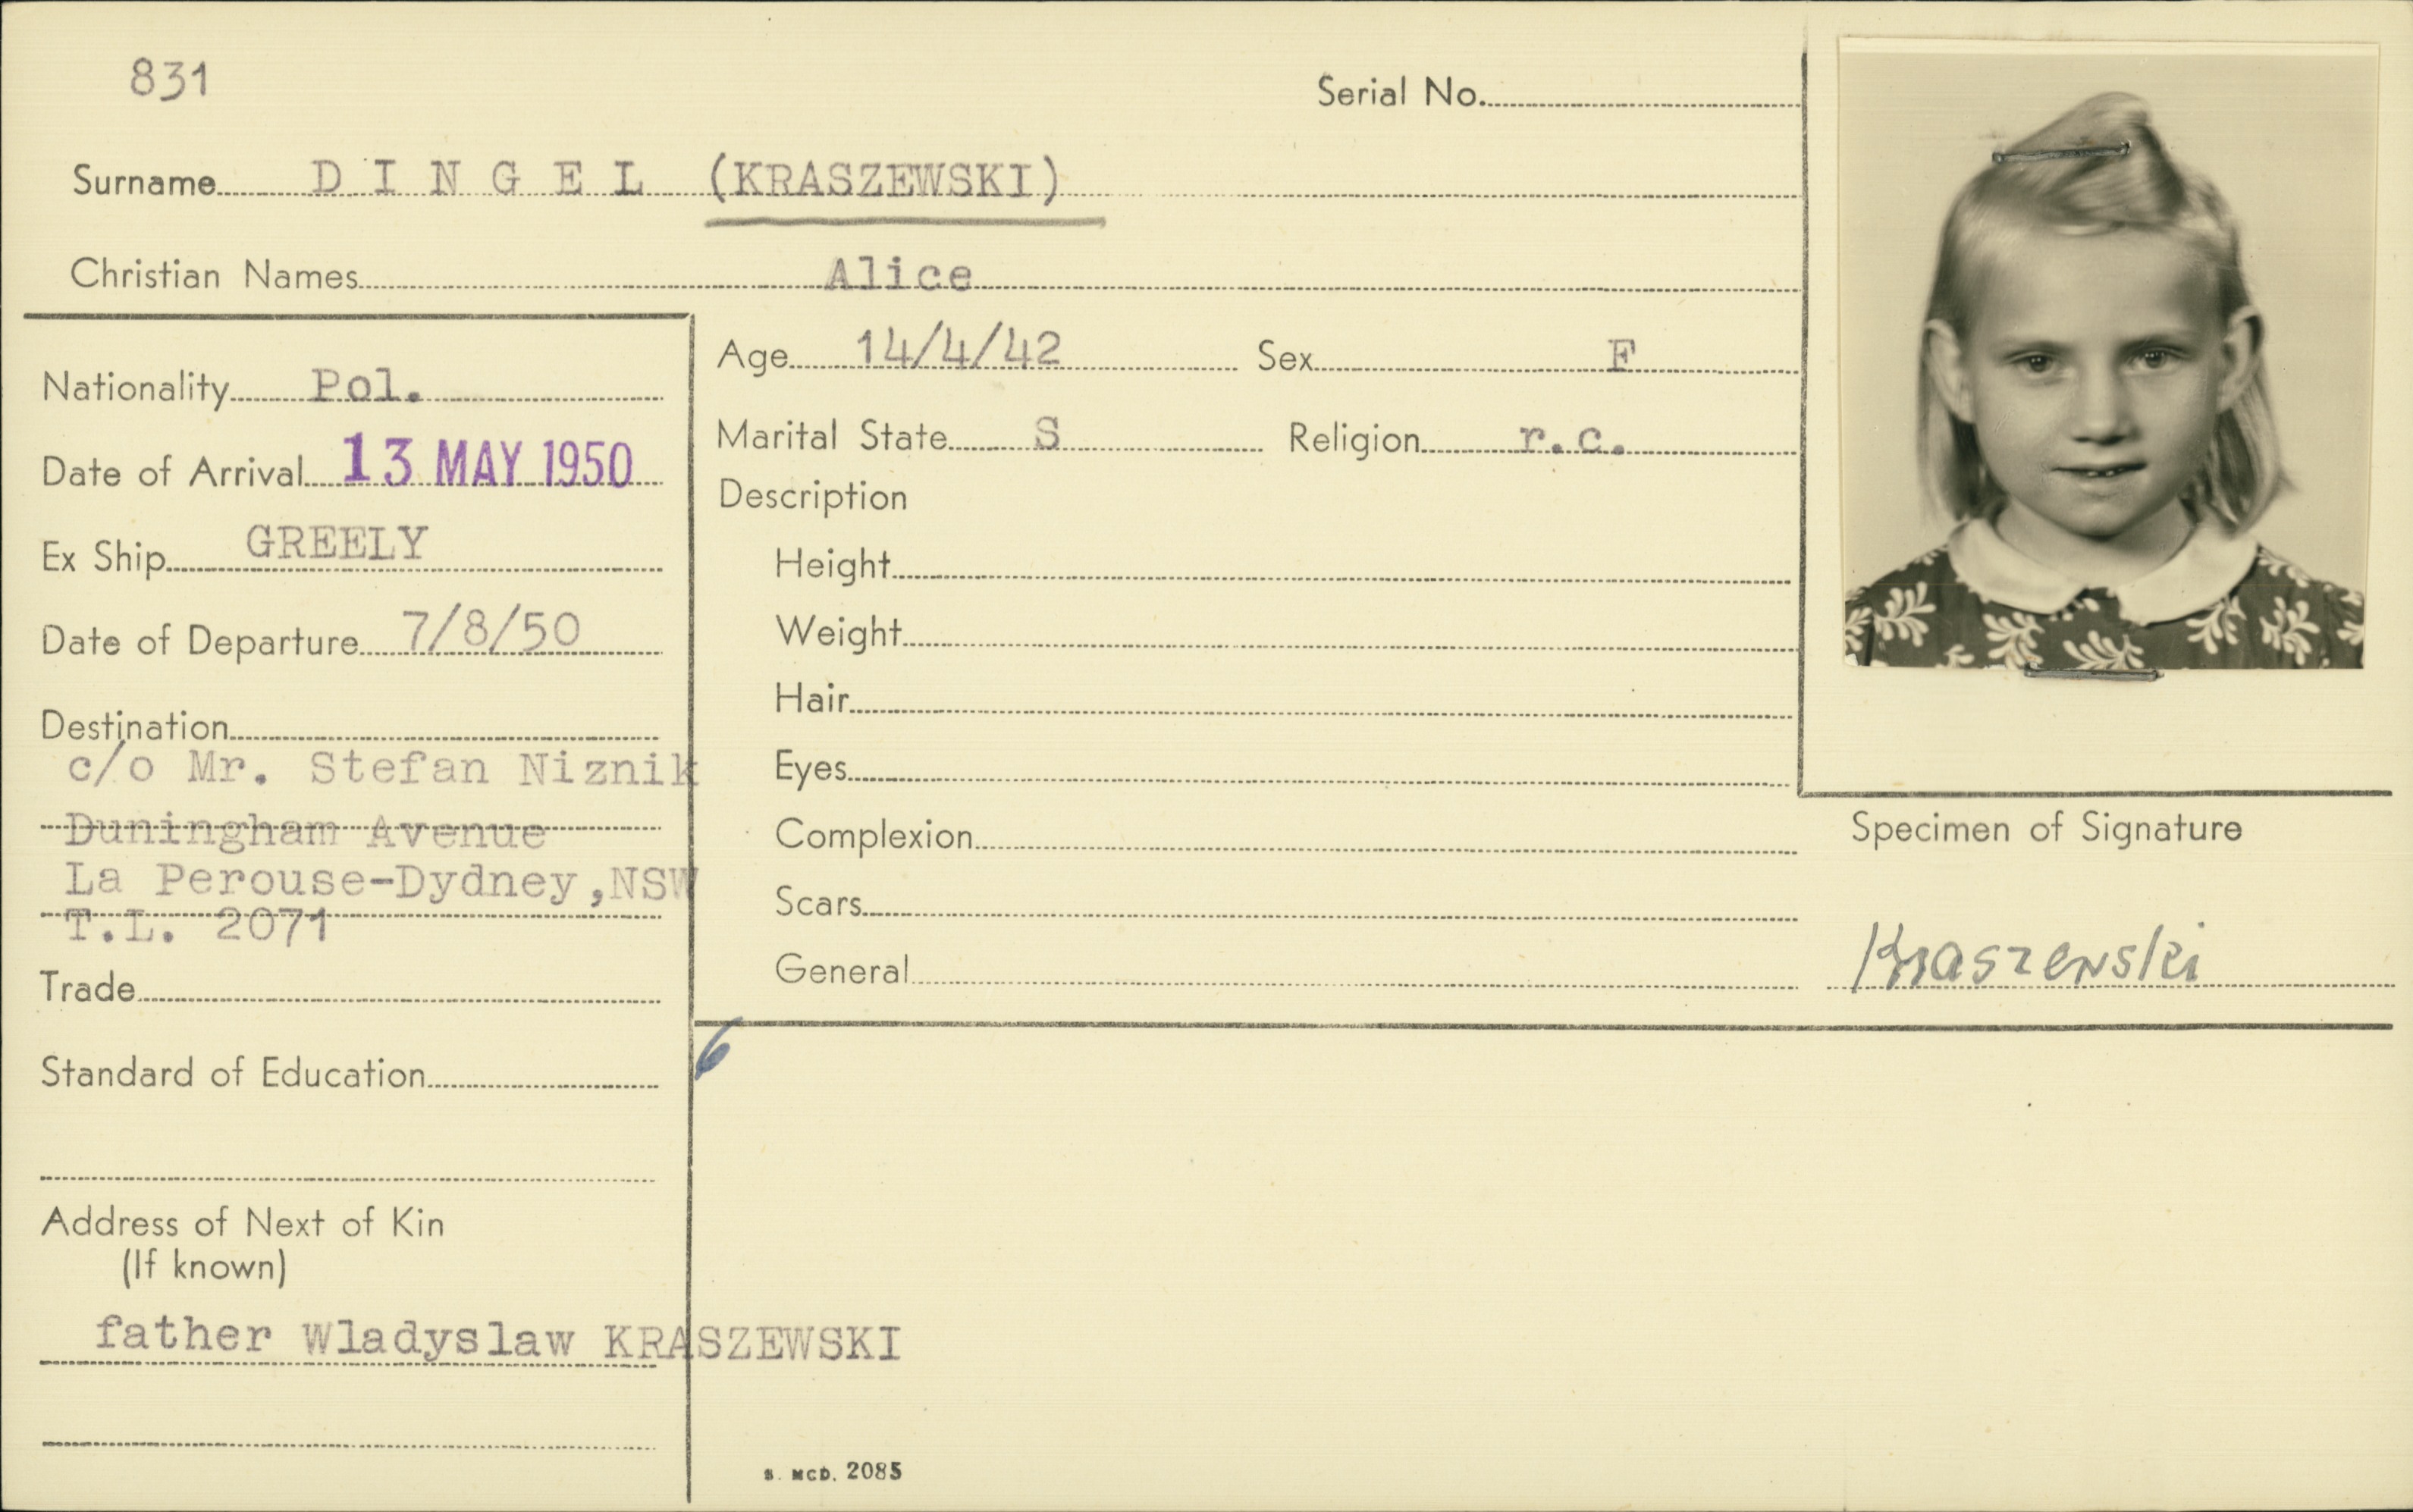 831
Serial No.
Surname D I N G E L (KRASZEWSKI)
Christian Names Alice
Nationality Pol.
Date of Arrival 13 MAY 1950
Ex Ship GREELY
Date of Departure 7/8/50
Destination
c/o Mr. Stefan Niznik
Duningham Avenue
La Perouse-Dydney,NSW
T.L. 2071
Trade
Standard of Education
Address of Next of Kin
(If known)
father Wladyslaw KRASZEWSKI
Age 14/4/42 Sex F
Marital State S Religion r.c.
Description
Height
Weight
Hair
Eyes
Complexion
Scars
General
6
Specimen of Signature
Kraszewski
S. MCD. 2085